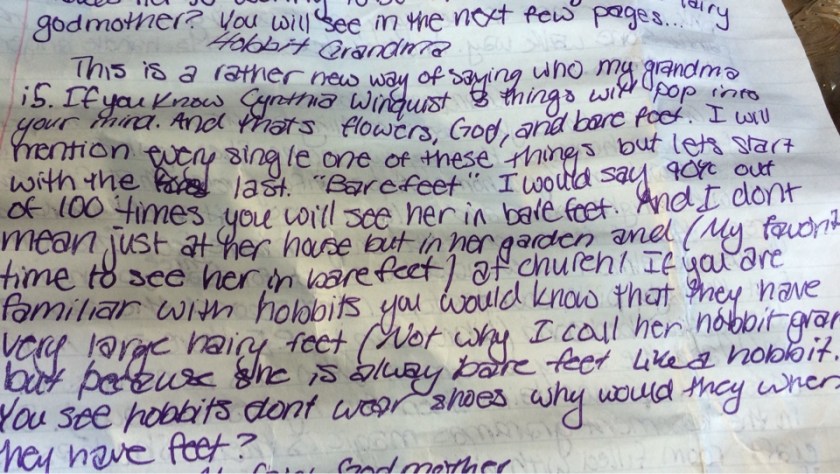 godmother? You will see in the next few pages.... fairy
Hobbit Grandma
This is a rather new way of saying who my grandma
is. If you know Cynthia Winquist 3 things will pop into
your mind. And thats flowers, God, and bare feet. I will
mention every single one of these things but lets start
with the last. "Bare feet" I would say 90% out
of 100 times you will see her in bare feet. And I dont
mean just at her house but in her garden and (My favorit
time to see her in bare feet) at church! If you are
familiar with hobbits you would know that they have
very large hairy feet (Not why I call her hobbit gran
but because she is alway bare feet like a hobbit.
You see hobbits dont wear shoes why would they when
hey have feet?
Godmother